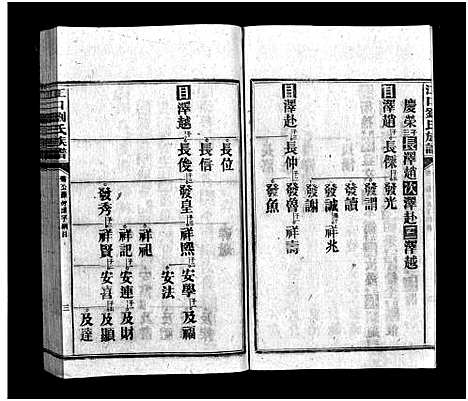 江口劉氏族譜
慶榮 長澤趙 次澤赴 三澤越
目澤趙 長傑 發光
發謂
發讀
發誠 祥兆
發謝
目澤赴 長仲 發魯 祥壽
發魚
目澤越 長俊 發皇 祥熈 安學 及福
長信
長位
安法
祥祖
祥記 安連 及財
發秀 祥賢 安喜 及顯
及達
江口劉氏族譜
三